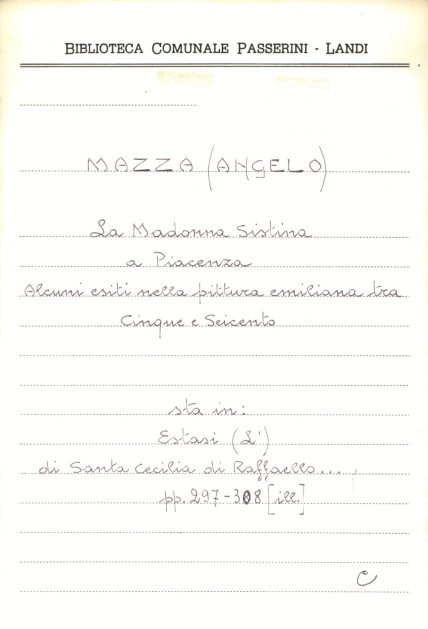 BIBLIOTECA COMUNALE PASSERINI - LANDI
MAZZA (ANGELO)
La Madonna Sistina
a Piacenza
Alcuni esiti nella pittura emiliana tra
Cinque e Seicento
sta in:
Estasi (L')
di Santa Cecilia di Raffaello...,
pp. 297-308 [ill.]
C